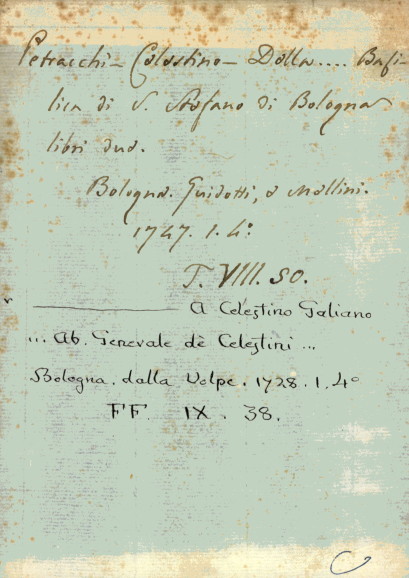 Petracchi - Celestino - Della.... Basi-
lica di S. Stefano di Bologna
libri due.
Bologna. Guidotti, e Mellini.
1747. 1. 4°.
T. VIII. 50.
——— A Celestino Galiano
... Ab. Generale de Celestini ...
Bologna. dalla Volpe. 1728. 1. 4°
FF. IX. 38.